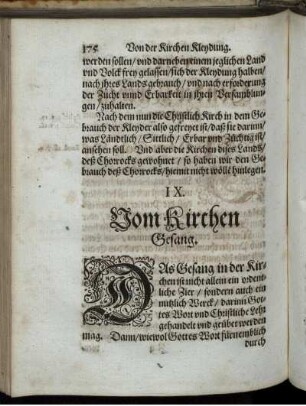 175 Von der Kirchen Kleydung.
werden sollen / vnd darneben einem jeglichen Land
vnd Volck frey gelassen / sich der Kleydung halben /
nach jhres Lands gebrauch / vnd nach erforderung
der Zucht vnnd Erbarkeit in jhren Versamblun
gen / zuhalten.
Nach dem nun die Christlich Kirch in dem Ge-
brauch der Kleyder also gefreyet ist / daß sie darinn /
was Ländtlich / Sittlich / Erbar vnd Züchtig ist /
ansehen soll. Vnd aber die Kirchen dises Lands /
deß Chorrocks gewohnet / so haben wir den Ge-
brauch deß Chorrocks / hiemit nicht wöllē hinlegen.
IX.
Vom Kirchen
Gesang.
DAs Gesang in der Kir-
chen ist nicht allein ein ordent-
liche Zier / sondern auch ein
nutzlich Werck / darinn Got-
tes Wort vnd Christliche Lehr
gehandelt vnd geübet werden
mag. Dann / wiewol Gottes Wort fürnemblich
durch